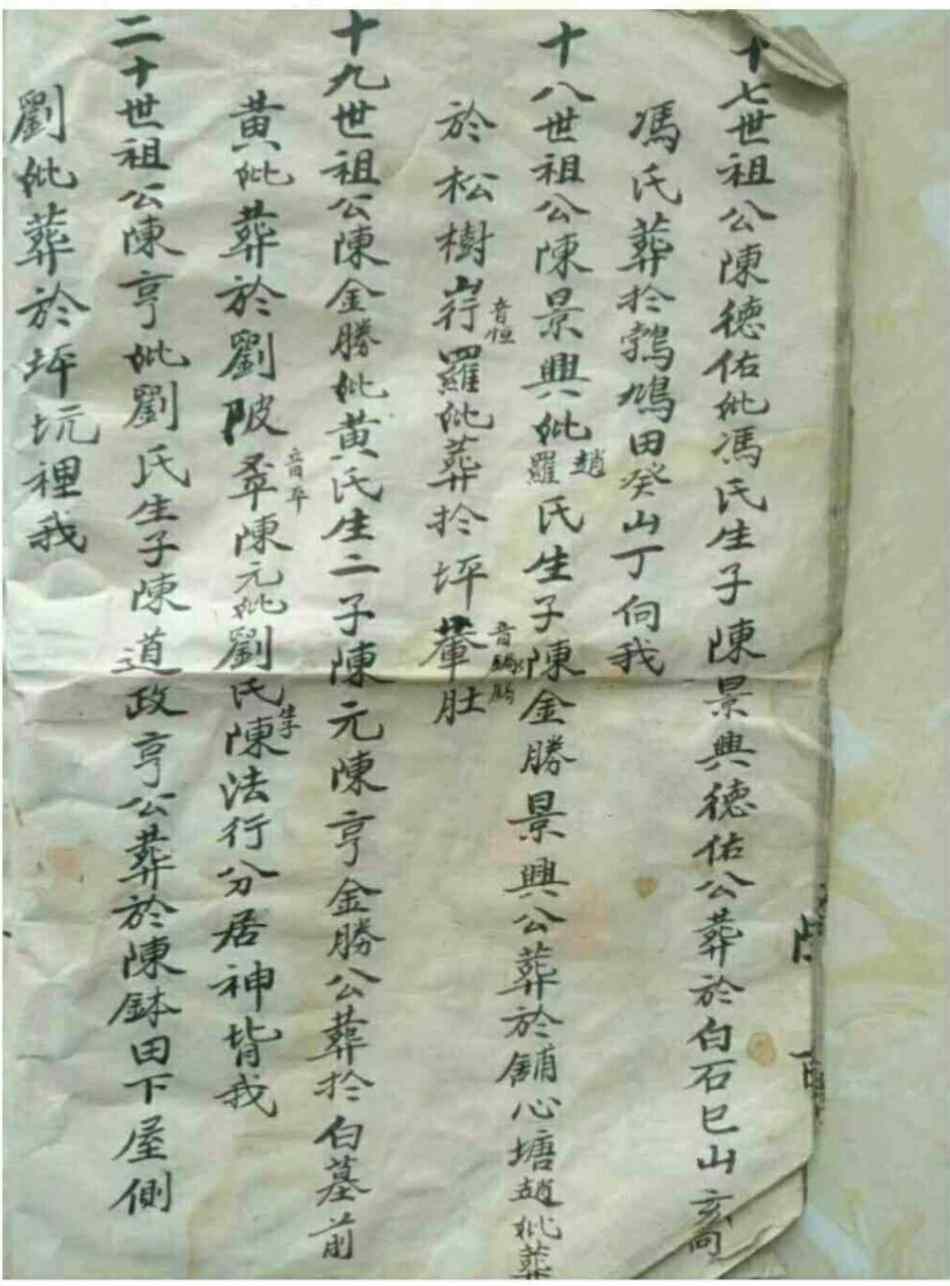 十七世祖公陳德佑妣馮氏生子陳景興德佑公葬於白石巳山亥向
馮氏葬扵鹁鳩田癸山丁向我
十八世祖公陳景興妣趙羅氏生子陳金勝景興公葬於鋪心塘趙妣葬
於松樹山行音恒羅妣葬扵坪肚
十九世祖公陳金勝妣黄氏生二子陳元陳亨金勝公葬扵白墓前
黄妣葬於劉陂陳元妣劉氏生子陳法行分居神背我
二十世祖公陳亨妣劉氏生子陳道政亨公葬於陳缽田下屋側
劉妣葬於坪坑裡我